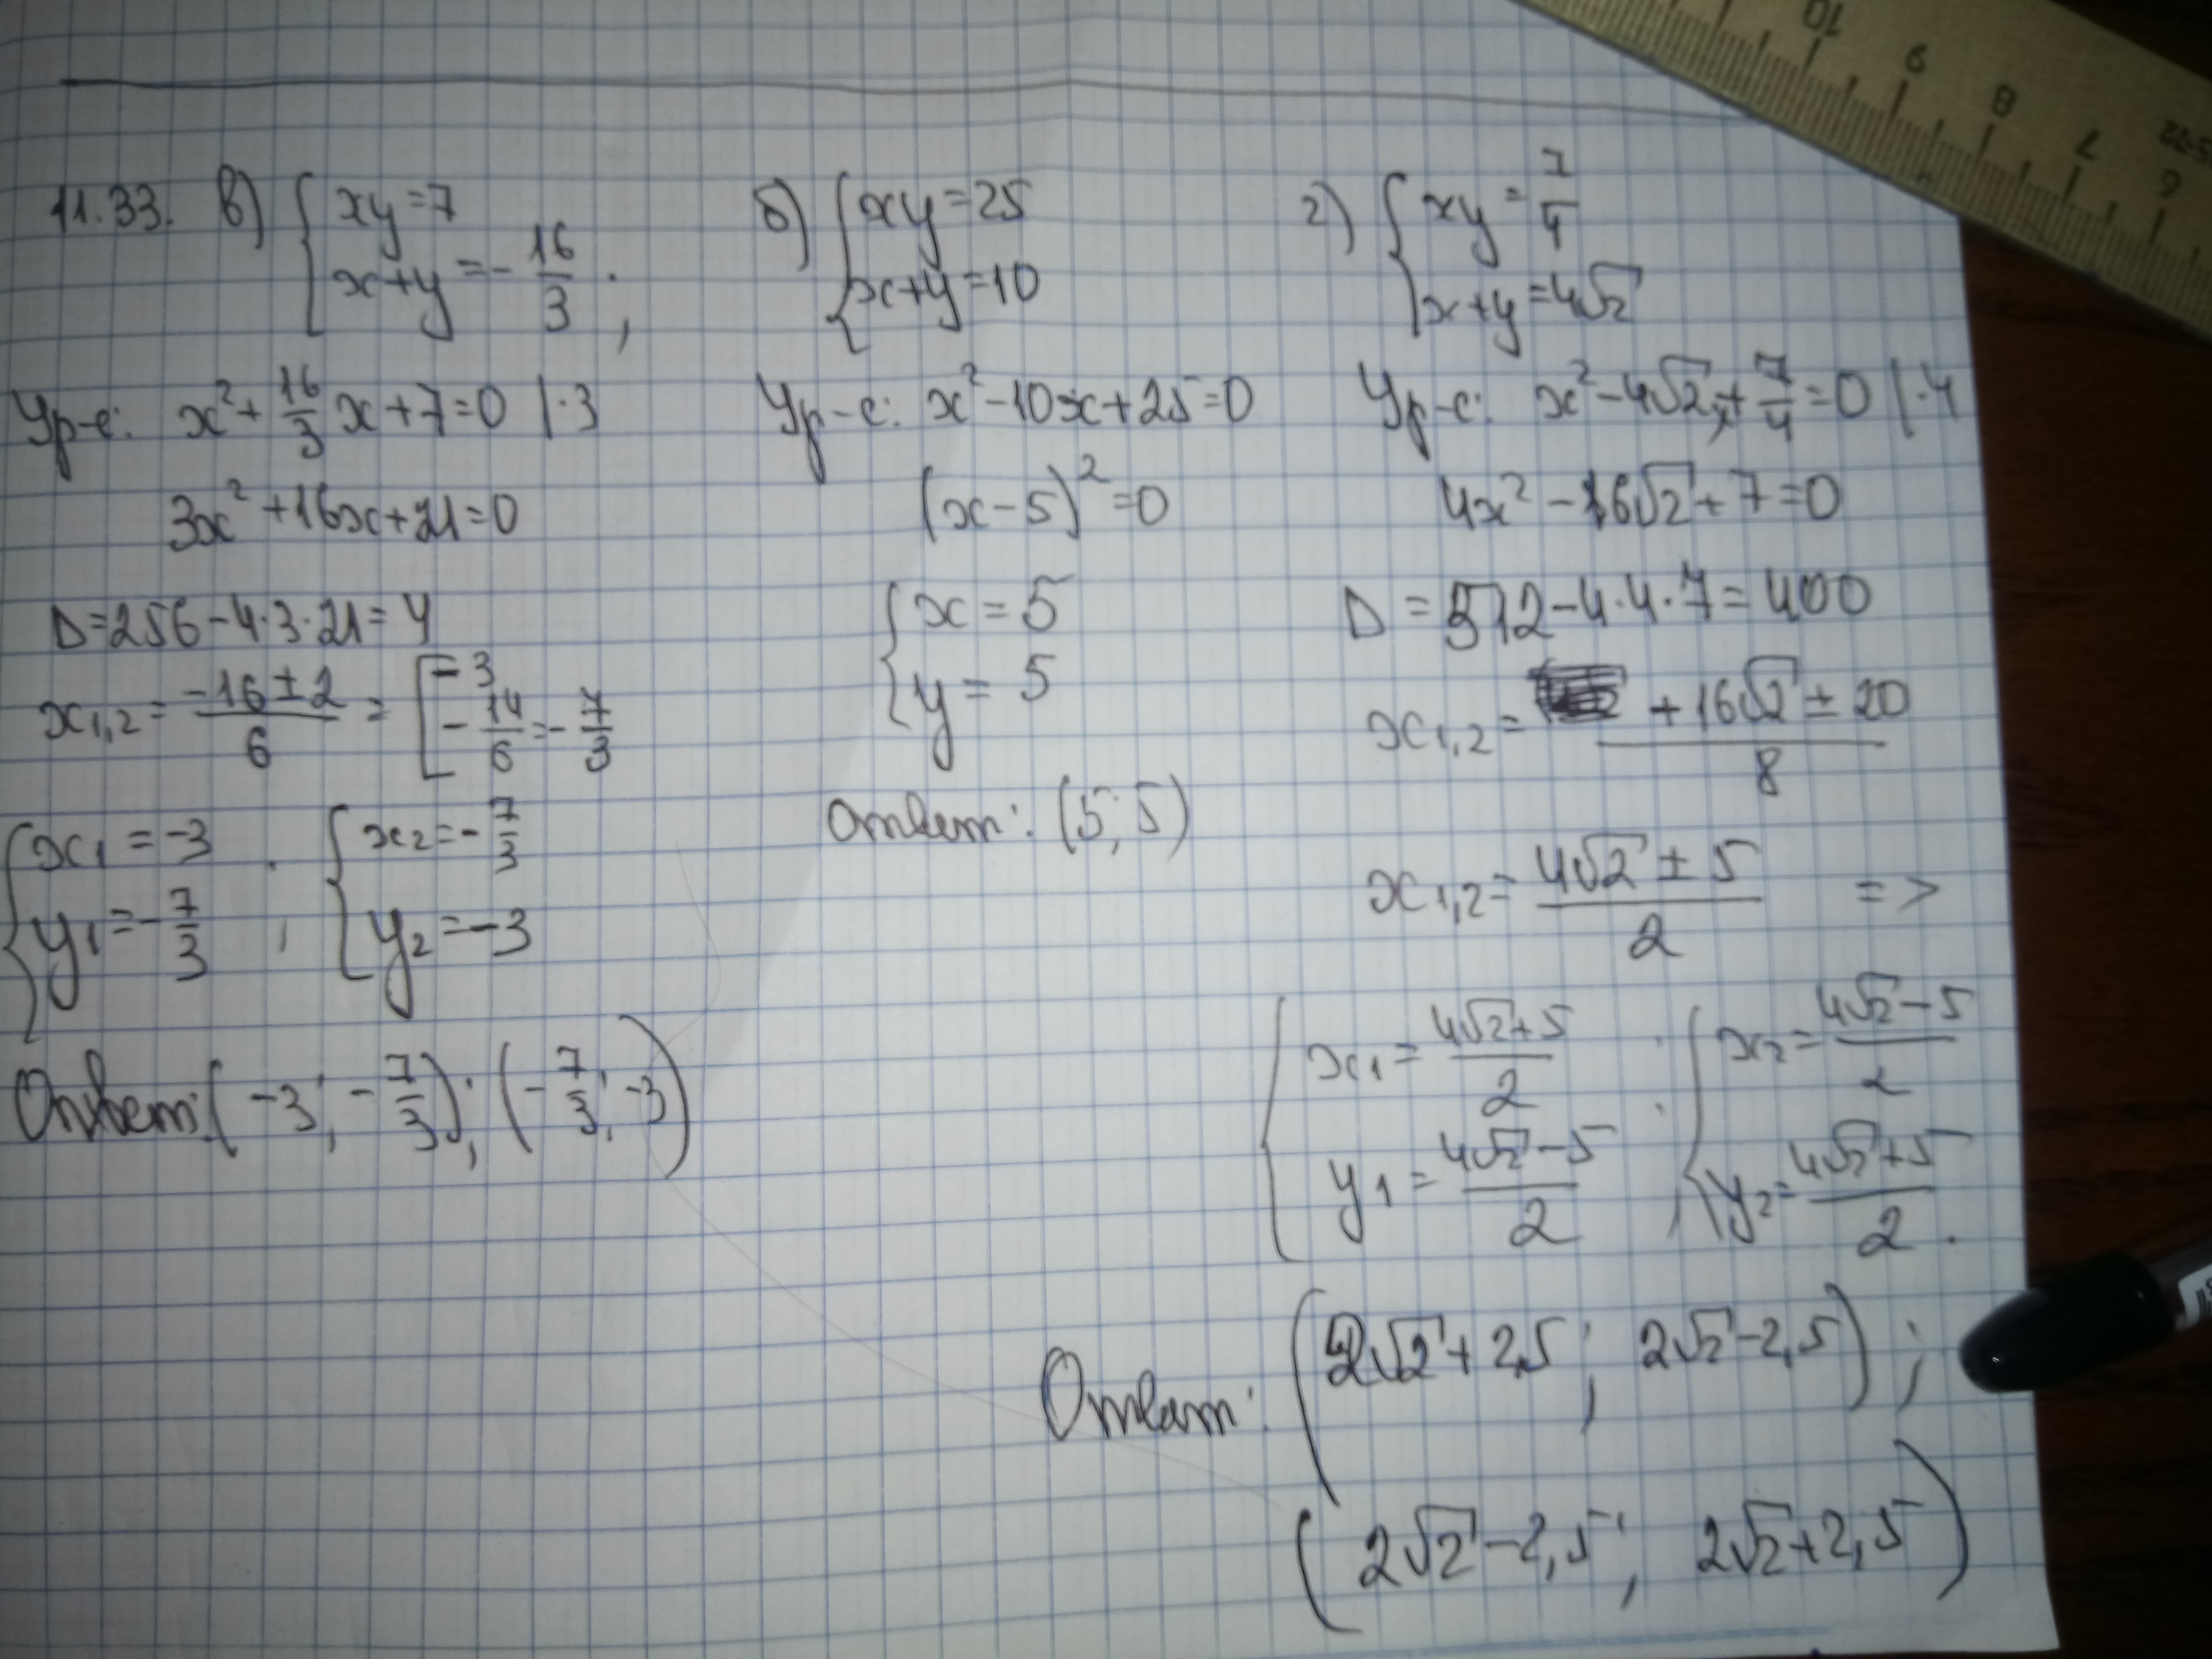 11.33. в) { xy=7
x+y=-16/3 ;
Ур-е: x²+16/3x+7=0 |·3
3x²+16x+21=0
D=256-4·3·21=4
x1,2=(-16±2)/6=[-3
-14/6=-7/3
{ x1=-3
y1=-7/3 ; { x2=-7/3
y2=-3
Ответ: (-3; -7/3); (-7/3; -3)
б) { xy=25
x+y=10
Ур-е: x²-10x+25=0
(x-5)²=0
{ x=5
y=5
Ответ: (5; 5)
г) { xy=7/4
x+y=4√2
Ур-е: x²-4√2x+7/4=0 |·4
4x²-16√2+7=0
D=512-4·4·7=400
x1,2=(+16√2±20)/8
x1,2=(4√2±5)/2 =>
{ x1=(4√2+5)/2
y1=(4√2-5)/2 ; { x2=(4√2-5)/2
y2=(4√2+5)/2.
Ответ: (2√2+2,5; 2√2-2,5);
(2√2-2,5; 2√2+2,5)
10 9 8 7 6